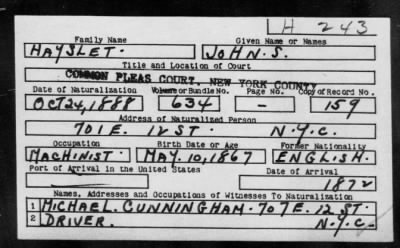 H 243
Family Name Given Name or Names
HAYSLET. JOHN. S.
Title and Location of Court
COMMON PLEAS COURT, NEW YORK COUNTY
Date of Naturalization Volume or Bundle No. Page No. Copy of Record No.
OCT 24, 1888 634 - 159
Address of Naturalized Person
701 E. 12 ST. N.Y.C.
Occupation Birth Date or Age Former Nationality
MACHINIST. MAY. 10, 1867 ENGLISH.
Port of Arrival in the United States Date of Arrival
1872
Names, Addresses and Occupations of Witnesses To Naturalization
1 MICHAEL. CUNNINGHAM. 707 E. 12 ST.
2 DRIVER. N.Y.C.